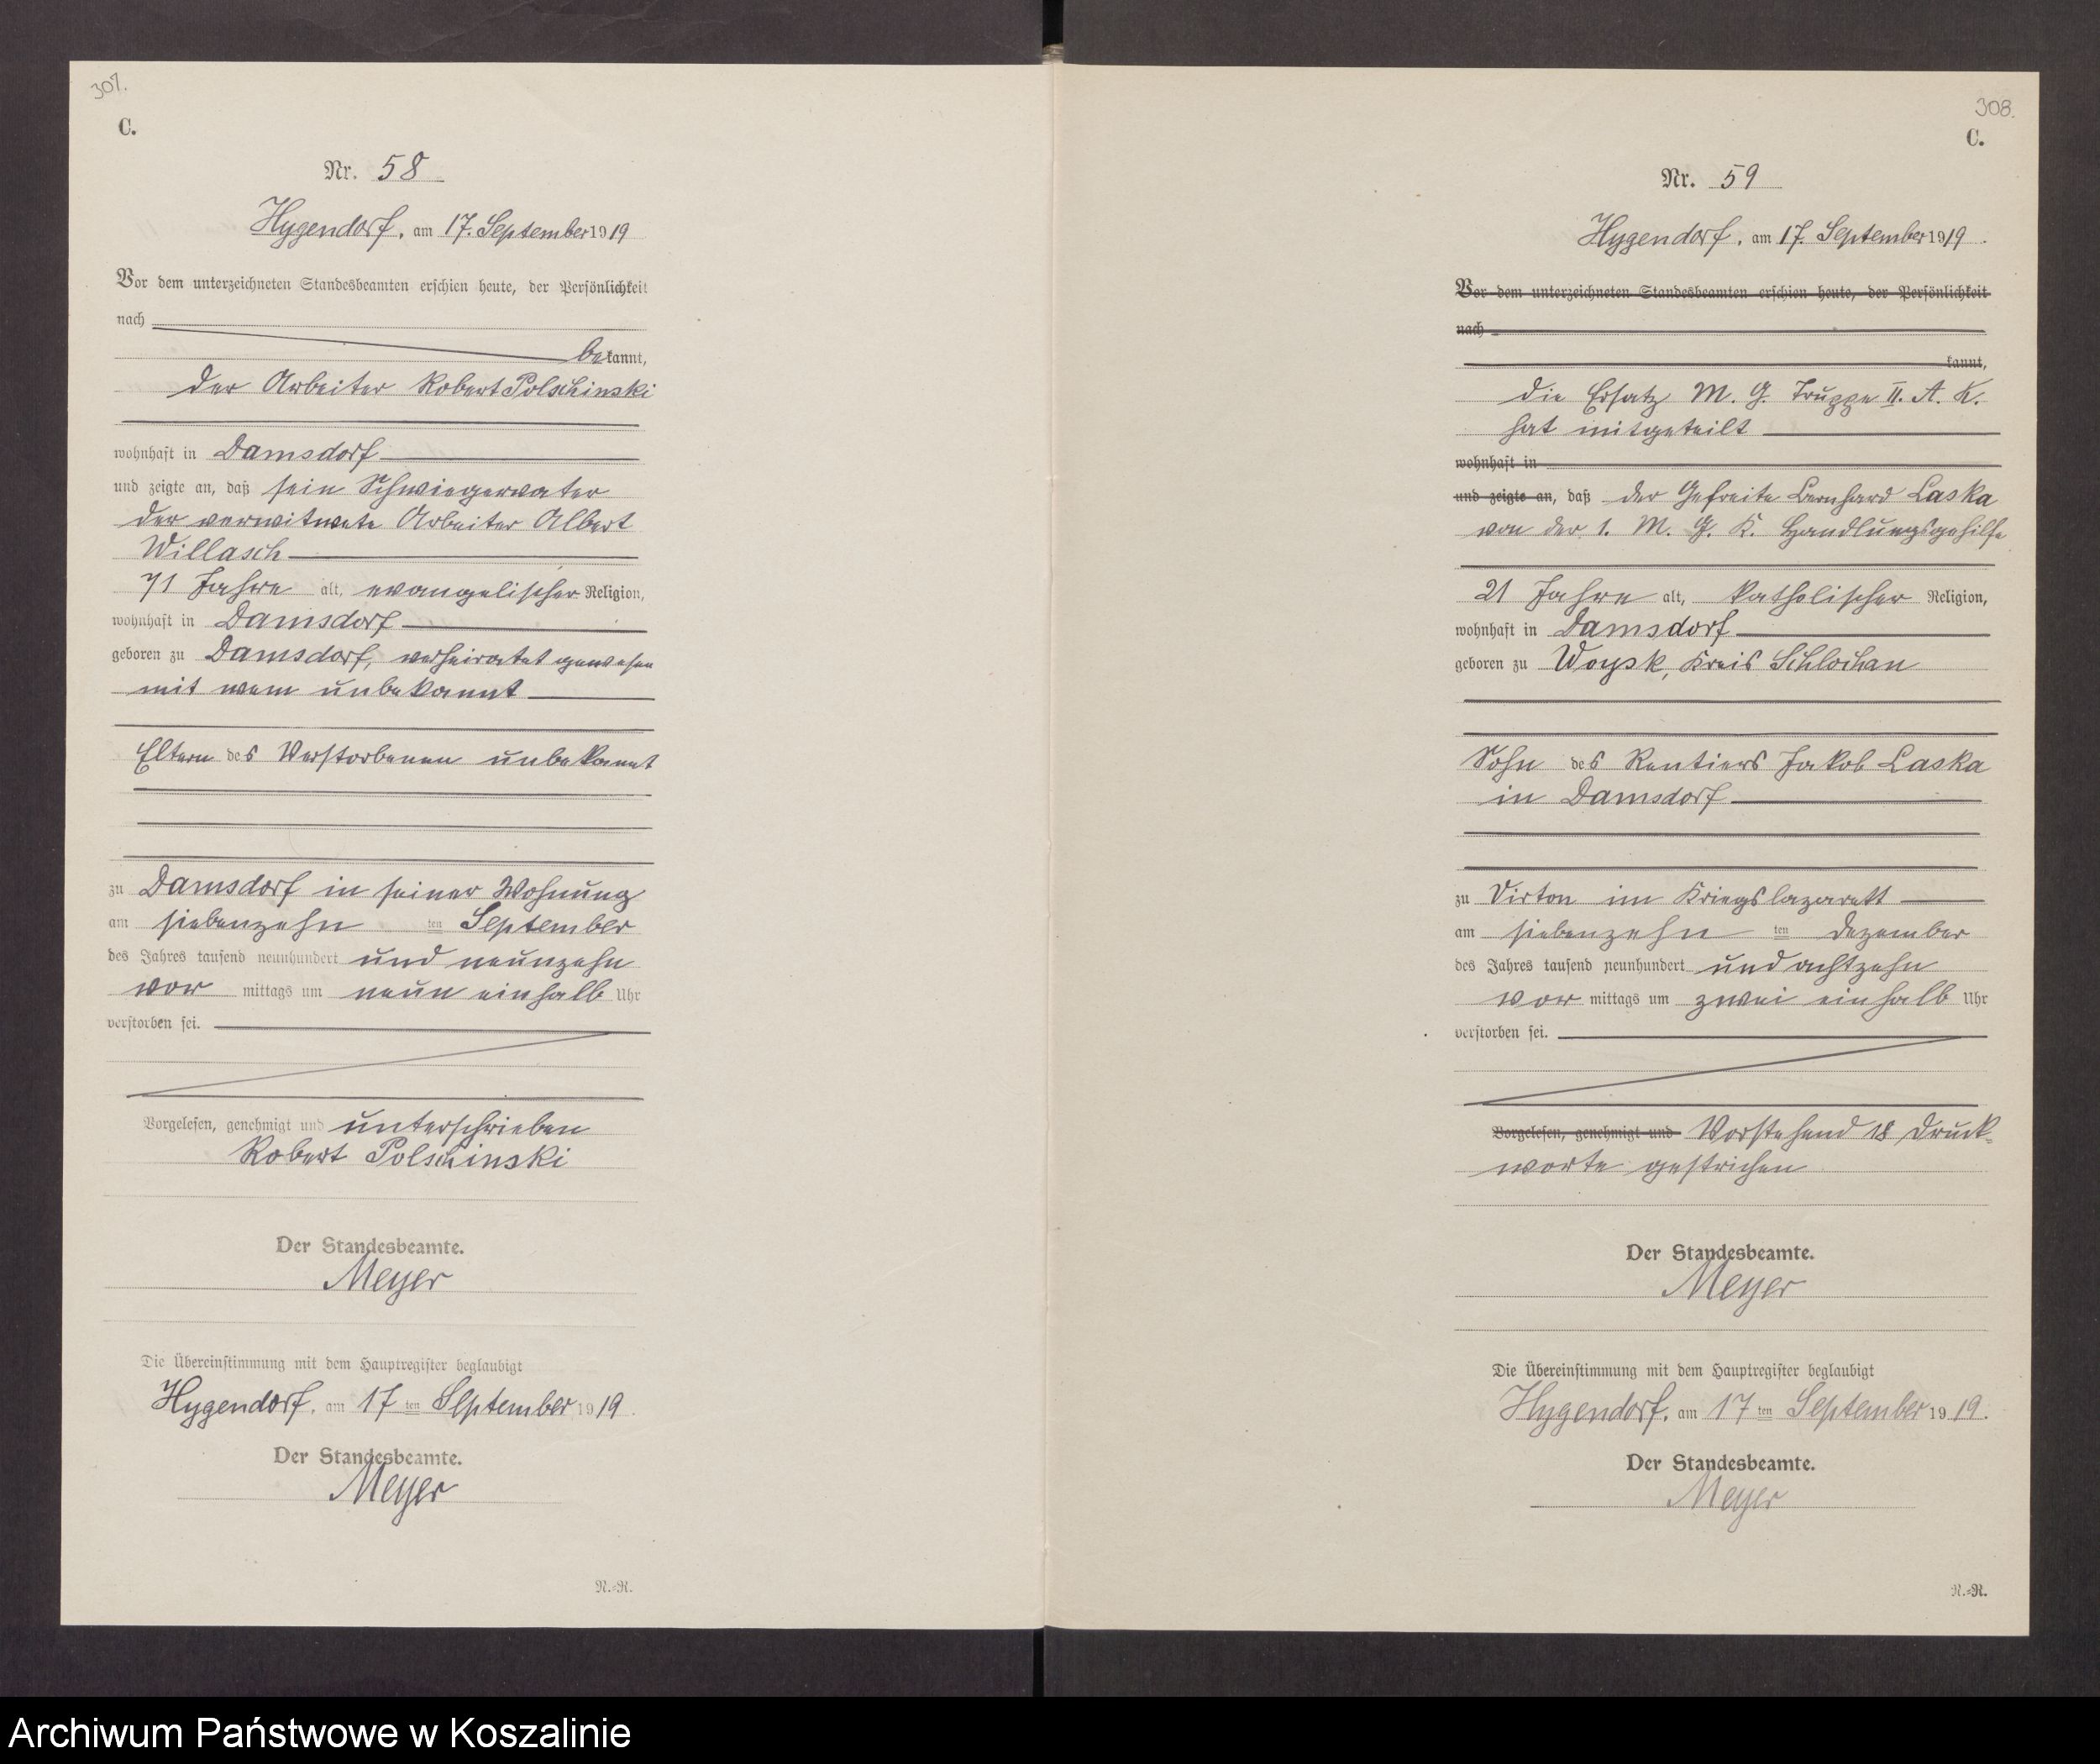 307.
C.
Nr. 58
Hygendorf, am 17. September 1919
Vor dem unterzeichneten Standesbeamten erschien heute, der Persönlichkeit
nach
bekannt,
der Arbeiter Robert Polschinski
wohnhaft in Damsdorf
und zeigte an, daß sein Schwiegervater
der verwitwete Arbeiter Albert
Willasch
71 Jahre alt, evangelischer Religion,
wohnhaft in Damsdorf
geboren zu Damsdorf, verheiratet gewesen
mit wem unbekannt
Eltern des Verstorbenen unbekannt
zu Damsdorf in seiner Wohnung
am siebenzehn ten September
des Jahres tausend neunhundert und neunzehn
vor mittags um neun einhalb Uhr
verstorben sei.
Vorgelesen, genehmigt und unterschrieben
Robert Polschinski
Der Standesbeamte.
Meyer
Die Übereinstimmung mit dem Hauptregister beglaubigt
Hygendorf, am 17 ten September 1919.
Der Standesbeamte.
Meyer
N.-R.
308.
C.
Nr. 59
Hygendorf, am 17. September 1919.
Vor dem unterzeichneten Standesbeamten erschien heute, der Persönlichkeit
nach
kannt,
Die Ersatz M. G. Truppe II. A. K.
hat mitgeteilt
wohnhaft in
und zeigte an, daß der Gefreite Bernhard Laska
von der 1. M. G. K. Handlungsgehilfe
21 Jahre alt, katholischer Religion,
wohnhaft in Damsdorf
geboren zu Woysk, Kreis Schlochau
Sohn des Rentiers Jakob Laska
in Damsdorf
zu Virton im Kriegslazarett
am siebenzehn ten Dezember
des Jahres tausend neunhundert und achtzehn
vor mittags um zwei einhalb Uhr
verstorben sei.
Vorgelesen, genehmigt und Vorstehend 18 Druck-
worte gestrichen
Der Standesbeamte.
Meyer
Die Übereinstimmung mit dem Hauptregister beglaubigt
Hygendorf, am 17 ten September 1919.
Der Standesbeamte.
Meyer
N.-R.
Archiwum Państwowe w Koszalinie